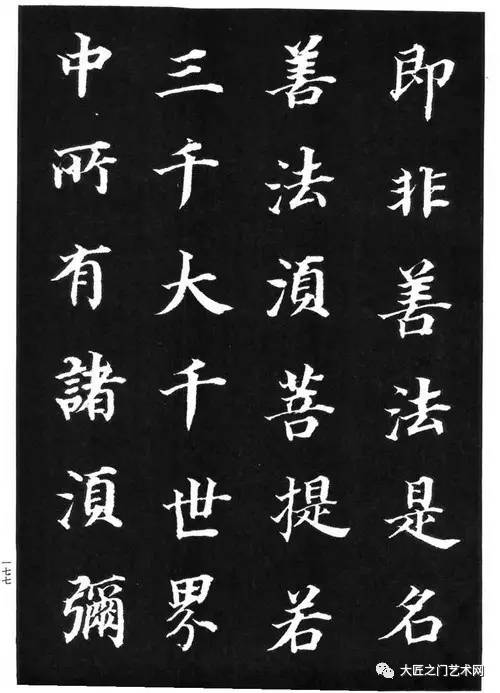 即非善法是名
善法湏菩提若
三千大千世界
中所有諸湏彌
一七七
大匠之门艺术网